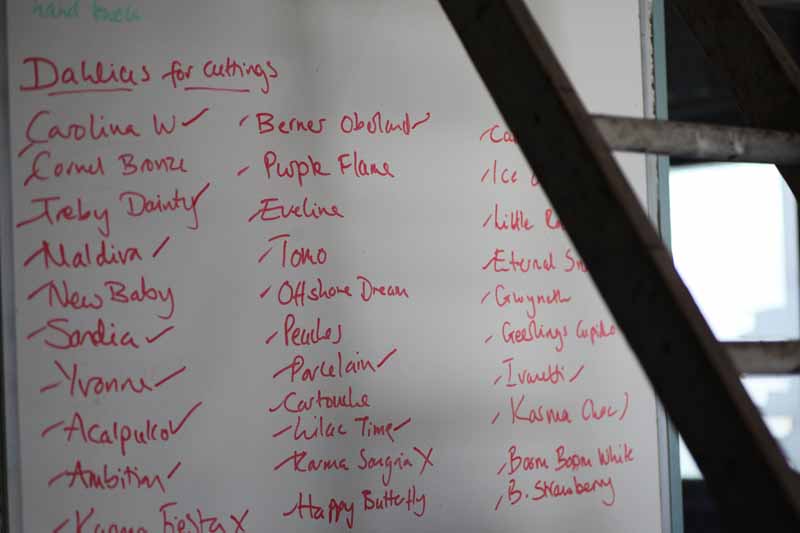 hand
Dahlias for cuttings
Carolina W ✓
Cornel Bronze
Treby Dainty ✓
Maldiva ✓
New Baby
Sandia ✓
Yvonne ✓
Acalpulco ✓
Ambition ✓
Karma Fiesta X
Berner Oberland ✓
Purple Flame
Eveline
Tomo
Offshore Dream
Peaches
Porcelain ✓
Cartouche
Lilac Time ✓
Karma Sangria X
Happy Butterfly
Ice
Little
Eternal
Gwyneth
Geerlings Cupido
Ivanetti ✓
Karma Choc)
Boom Boom White
B. Strawberry